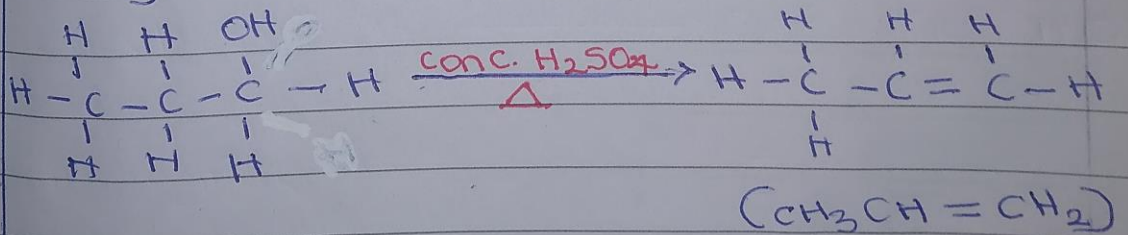 H H OH H H H
H - C - C - C - H conc. H2SO4 → H - C - C = C - H
Δ
H H H H
(CH3CH = CH2)